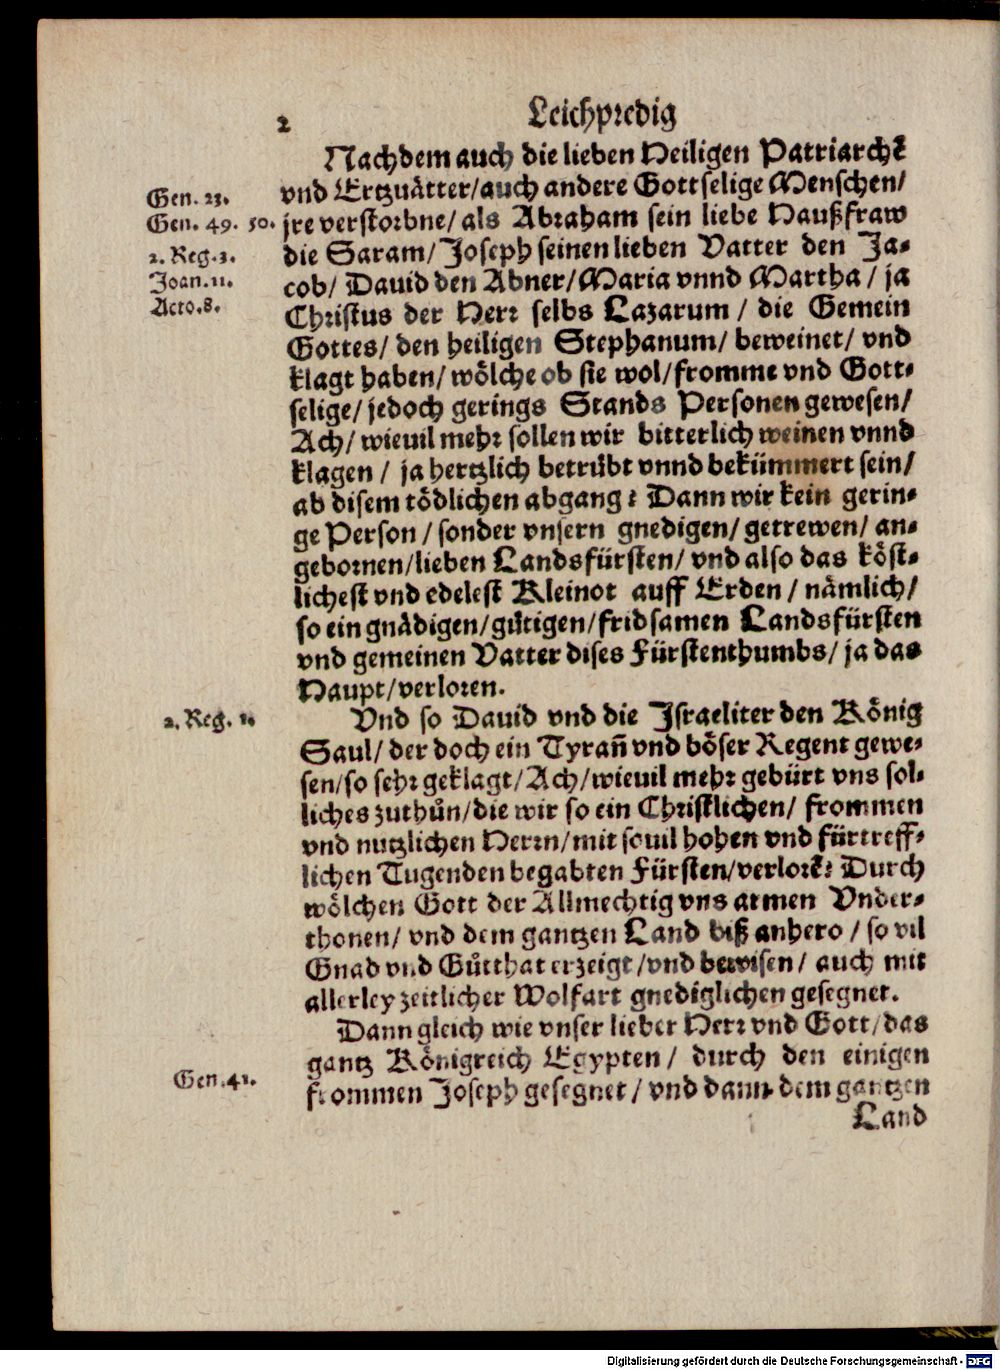 2 Leichpredig
Nachdem auch die lieben Heiligen Patriarchē
Gen. 23. vnd Ertzuätter/auch andere Gottselige Menschen/
Gen. 49. 50. jre verstorbne/ als Abraham sein liebe Haußfraw
2. Reg. 3. die Saram/ Joseph seinen lieben Vatter den Ja-
Joan. 11. cob/ Dauid den Abner/ Maria vnnd Martha / ja
Acto. 8. Christus der Herr selbs Lazarum / die Gemein
Gottes/ den heiligen Stephanum/ beweinet/ vnd
klagt haben/ wölche ob sie wol/ fromme vnd Gott-
selige/ jedoch gerings Stands Personen gewesen/
Ach/ wieuil mehr sollen wir bitterlich weinen vnnd
klagen / ja hertzlich betrübt vnnd bekümmert sein/
ab disem tödlichen abgang? Dann wir kein gerin-
ge Person / sonder vnsern gnedigen/ getrewen/ an-
gebornen/ lieben Landsfürsten/ vnd also das köst-
lichest vnd edelest Kleinot auff Erden / nämlich/
so ein gnädigen/ gütigen/ fridsamen Landsfürsten
vnd gemeinen Vatter dises Fürstenthumbs/ ja das
Haupt/ verloren.
2. Reg. 1. Vnd so Dauid vnd die Israeliter den König
Saul/ der doch ein Tyrañ vnd böser Regent gewe-
sen/ so sehr geklagt/ Ach/ wieuil mehr gebürt vns sol-
liches zuthůn/ die wir so ein Christlichen/ frommen
vnd nutzlichen Herrn/ mit souil hohen vnd fürtreff-
lichen Tugenden begabten Fürsten/ verlorē? Durch
wölchen Gott der Allmechtig vns armen Vnder-
thonen/ vnd dem gantzen Land biß anhero / so vil
Gnad vnd Gůtthat erzeigt/ vnd bewisen/ auch mit
allerley zeitlicher Wolfart gnediglichen gesegnet.
Dann gleich wie vnser lieber Herr vnd Gott/ das
gantz Königreich Egypten/ durch den einigen
Gen. 41. frommen Joseph gesegnet/ vnd dann dem gantzen
Land
Digitalisierung gefördert durch die Deutsche Forschungsgemeinschaft - DFG